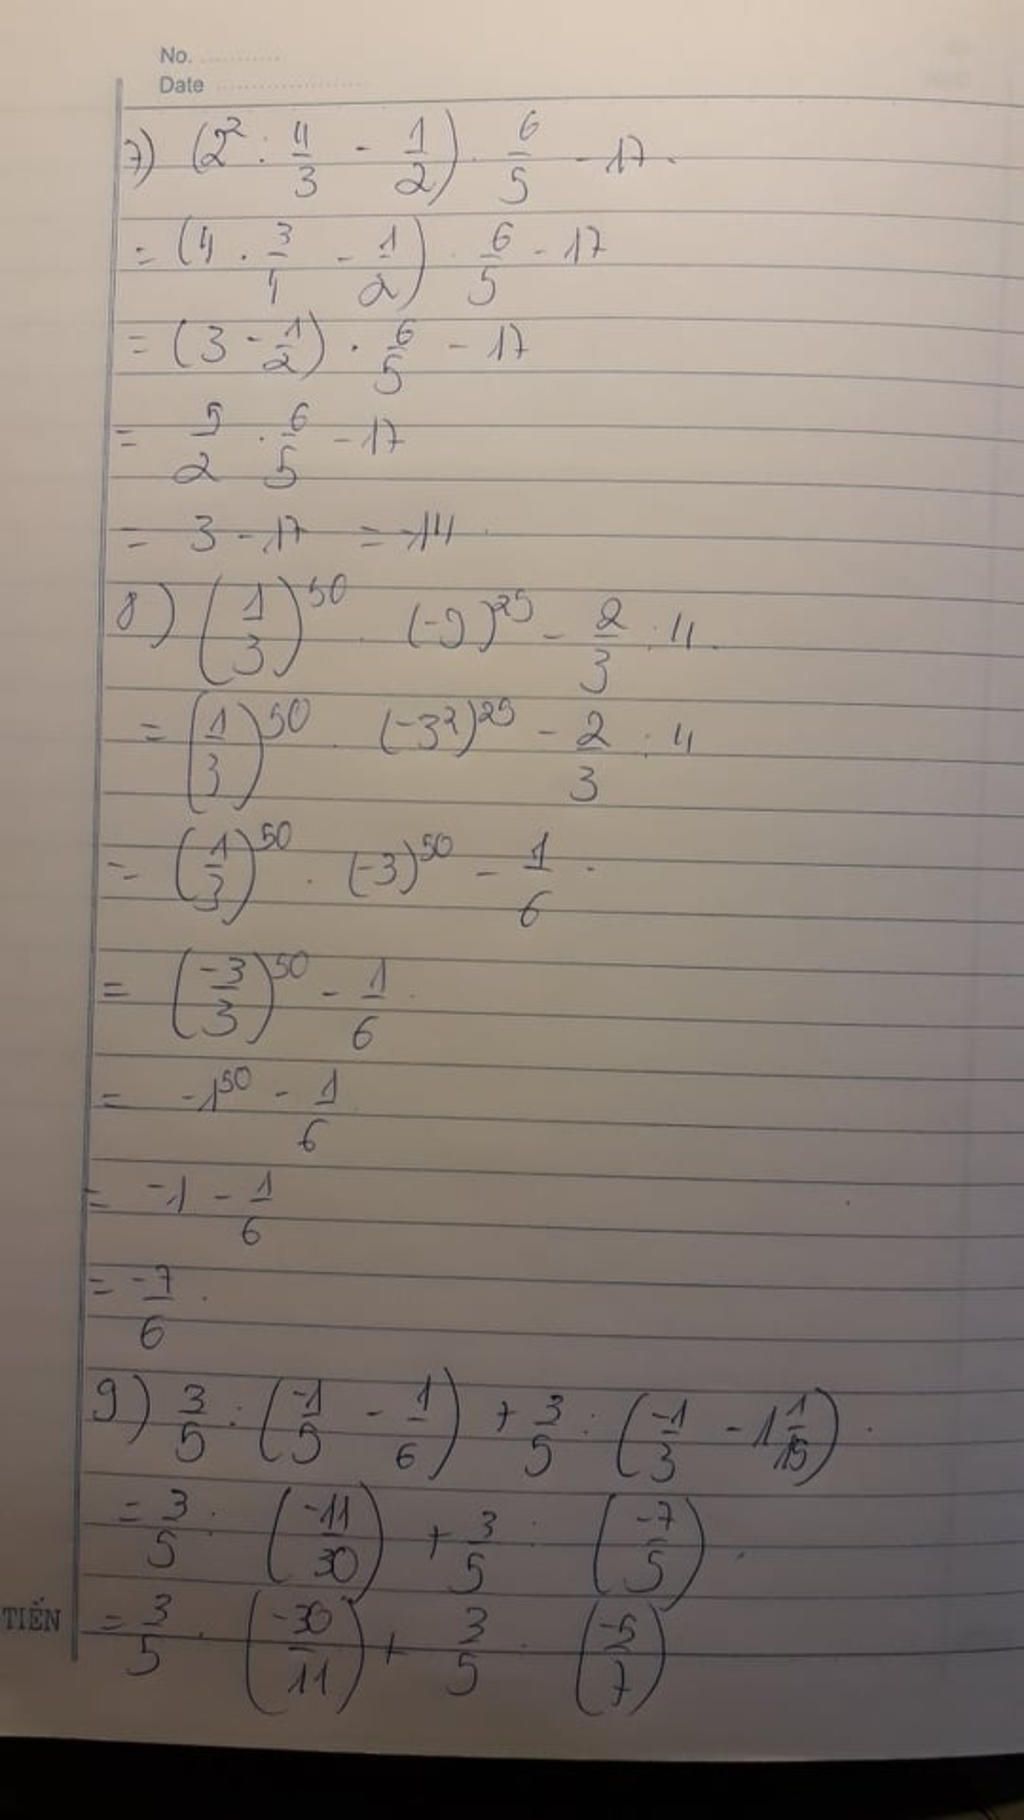 No. ............
Date ......................
7) (2² : 4/3 - 1/2) . 6/5 - 17.
= (4 . 3/4 - 1/2) . 6/5 - 17
= (3 - 1/2) . 6/5 - 17
= 5/2 . 6/5 - 17
= 3 - 17 = -14.
8) (1/3)⁵⁰ . (-9)²⁵ - 2/3 : 4.
= (1/3)⁵⁰ . (-3²)²⁵ - 2/3 : 4
= (1/3)⁵⁰ . (-3)⁵⁰ - 1/6.
= (-3/3)⁵⁰ - 1/6.
= -1⁵⁰ - 1/6.
= -1 - 1/6
= -7/6.
9) 3/5 : (-1/5 - 1/6) + 3/5 : (-1/3 - 1 1/15).
= 3/5 : (-11/30) + 3/5 : (-7/5).
= 3/5 . (-30/11) + 3/5 . (-5/7)
TIẾN